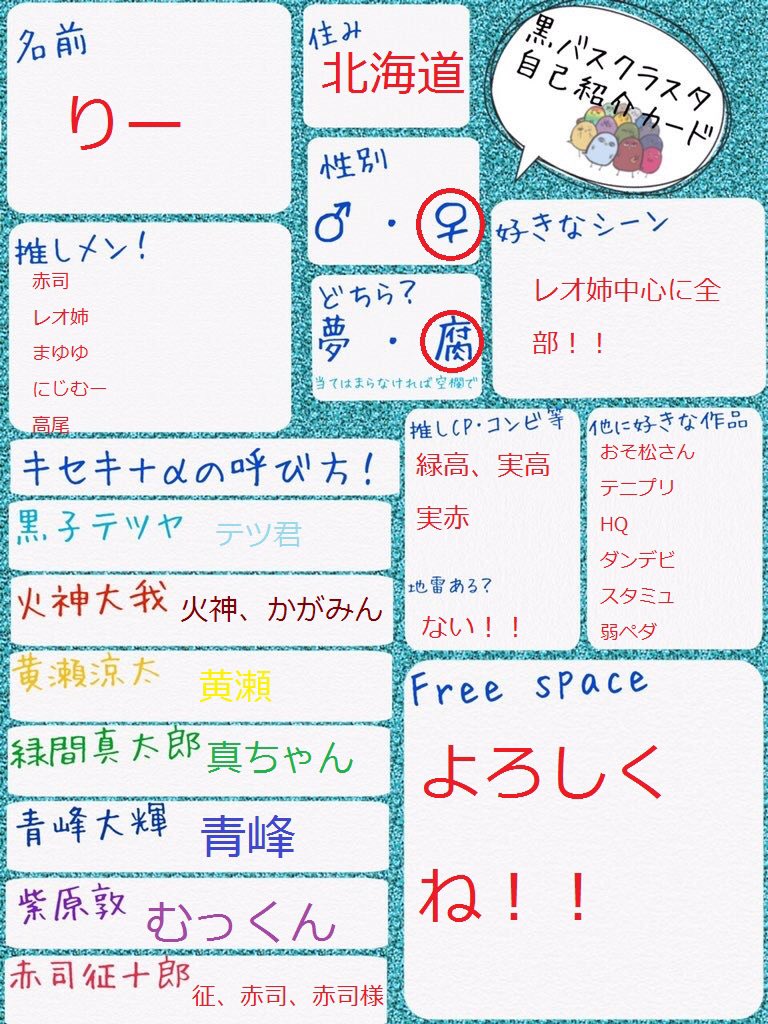 名前
りー
住み
北海道
黒バスクラスタ
自己紹介カード
性別
♂・♀
推しメン!
赤司
レオ姉
まゆゆ
にじむー
高尾
どちら?
夢・腐
当てはまらなければ空欄で
好きなシーン
レオ姉中心に全
部！！
キセキ+αの呼び方!
黒子テツヤ テツ君
火神大我 火神、かがみん
黄瀬涼太 黄瀬
緑間真太郎 真ちゃん
青峰大輝 青峰
紫原敦 むっくん
赤司征十郎 征、赤司、赤司様
推しCP・コンビ等
緑高、実高
実赤
地雷ある?
ない！！
他に好きな作品
おそ松さん
テニプリ
HQ
ダンデビ
スタミュ
弱ペダ
Free space
よろしく
ね！！